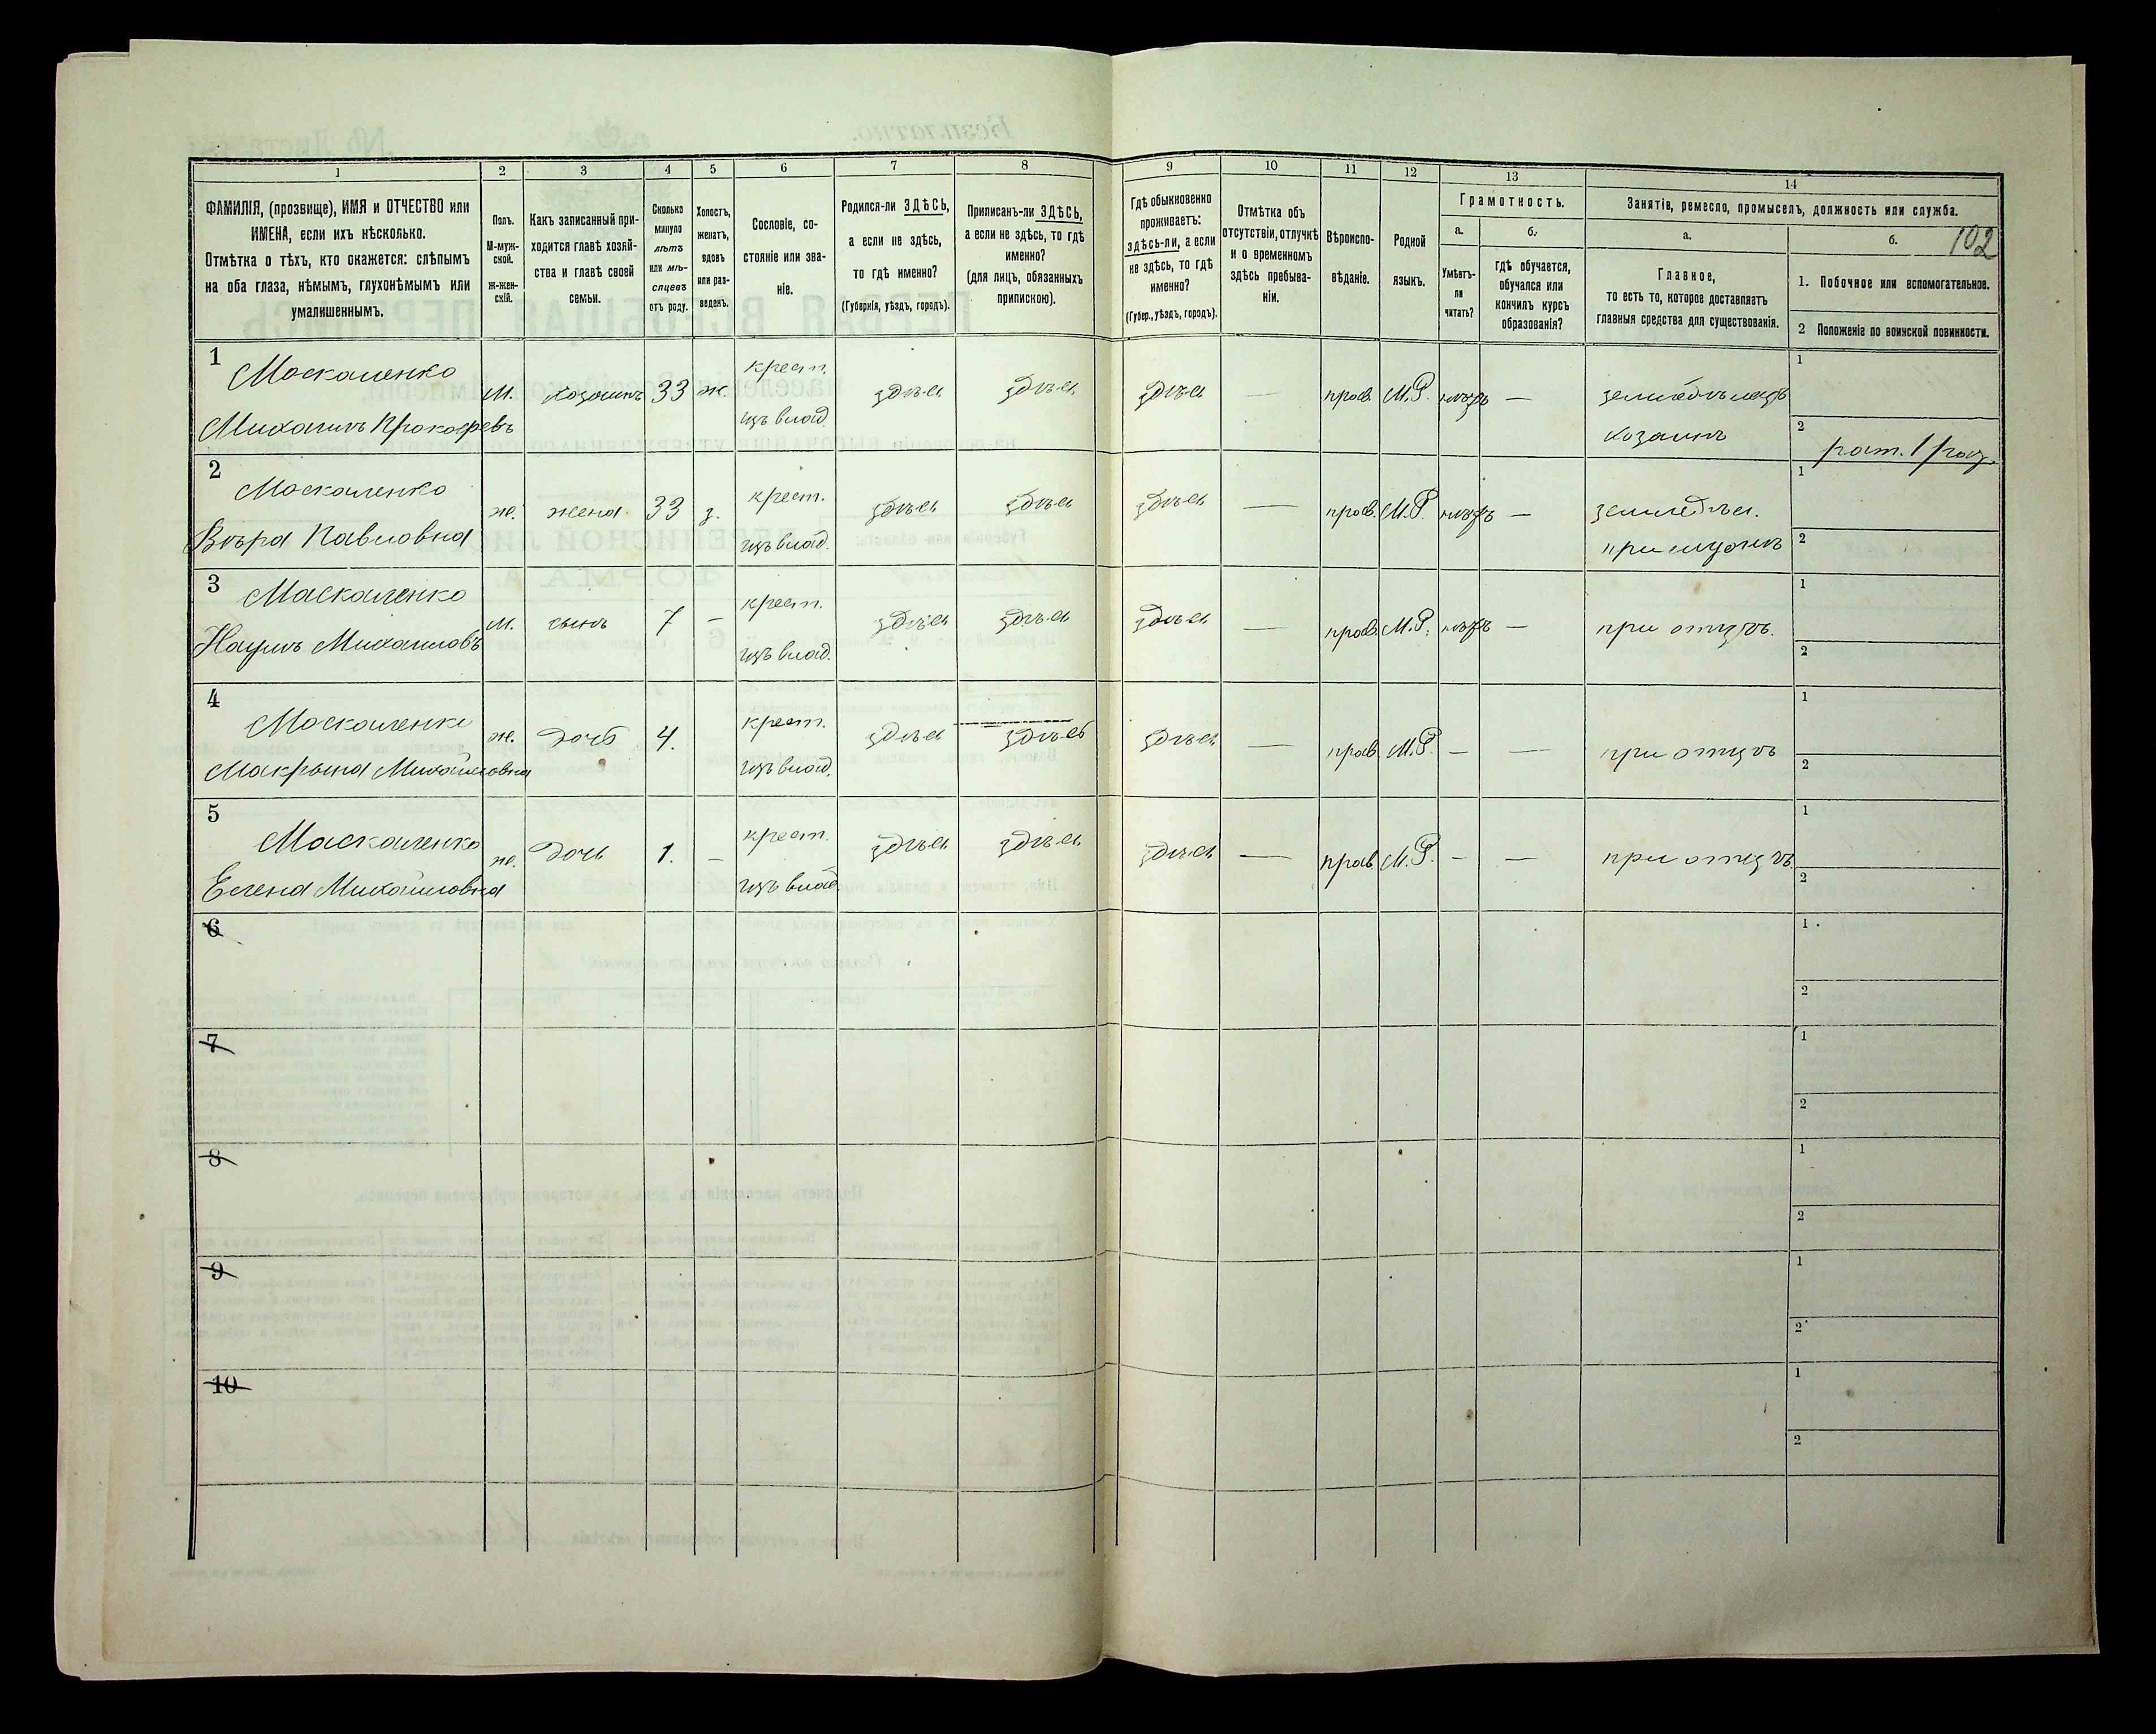 1
2
3
4
5
6
7
8
9
10
11
12
13
14
ФАМИЛІЯ, (прозвище), ИМЯ и ОТЧЕСТВО или
ИМЕНА, если ихъ нѣсколько.
Отмѣтка о тѣхъ, кто окажется: слѣпымъ
на оба глаза, нѣмымъ, глухонѣмымъ или
умалишеннымъ.
Полъ.
М-муж-
ской.
Ж-жен-
скій.
Какъ записанный при-
ходится главѣ хозяй-
ства и главѣ своей
семьи.
Сколько
минуло
лѣтъ
или мѣ-
сяцевъ
отъ роду.
Холостъ,
женатъ,
вдовъ
или раз-
веденъ.
Сословіе, со-
стояніе или зва-
ніе.
Родился-ли ЗДѢСЬ,
а если не здѣсь,
то гдѣ именно?
(Губернія, уѣздъ, городъ).
Приписанъ-ли ЗДѢСЬ,
а если не здѣсь, то гдѣ
именно?
(для лицъ, обязанныхъ
припискою).
Гдѣ обыкновенно
проживаетъ:
здѣсь-ли, а если
не здѣсь, то гдѣ
именно?
(Губер., уѣздъ, городъ).
Отмѣтка объ
отсутствіи, отлучкѣ
и о временномъ
здѣсь пребыва-
ніи.
Вѣроиспо-
вѣданіе.
Родной
языкъ.
Грамотность.
а.
Умѣетъ-
ли
читать?
б.
гдѣ обучается,
обучался или
кончилъ курсъ
образованія?
Занятія, ремесло, промыселъ, должность или служба.
102
а.
Главное,
то есть то, которое доставляетъ
главныя средства для существованія.
б.
1. Побочное или вспомогательное.
2 Положеніе по воинской повинности.
1
Маскаленко
Михаилъ Прокофьевъ
м. хозяинъ 33 ж. крест. изъ влад. здѣсь здѣсь здѣсь — прав. М.Р. — земледѣлецъ
хозяинъ
1
2
рат. 1 раз.
2
Маскаленко
Вѣра Павловна
ж. жена 33 з. крест. изъ влад. здѣсь здѣсь здѣсь — прав. М.Р. — земледѣл.
при мужѣ
1
2
3
Маскаленко
Наумъ Михаиловъ
м. сынъ 7 — крест. изъ влад. здѣсь здѣсь здѣсь — прав. М.Р. — при отцѣ.
1
2
4
Маскаленко
Макрына Михайловна
ж. дочь 4. крест. изъ влад. здѣсь здѣсь здѣсь — прав М.Р. — — при отцѣ
1
2
5
Маскаленко
Елена Михайловна
ж. дочь 1. — крест. изъ влад. здѣсь здѣсь здѣсь — прав М.Р. — — при отцѣ
1
2
6
1
2
7
1
2
8
1
2
9
1
2
10
1
2